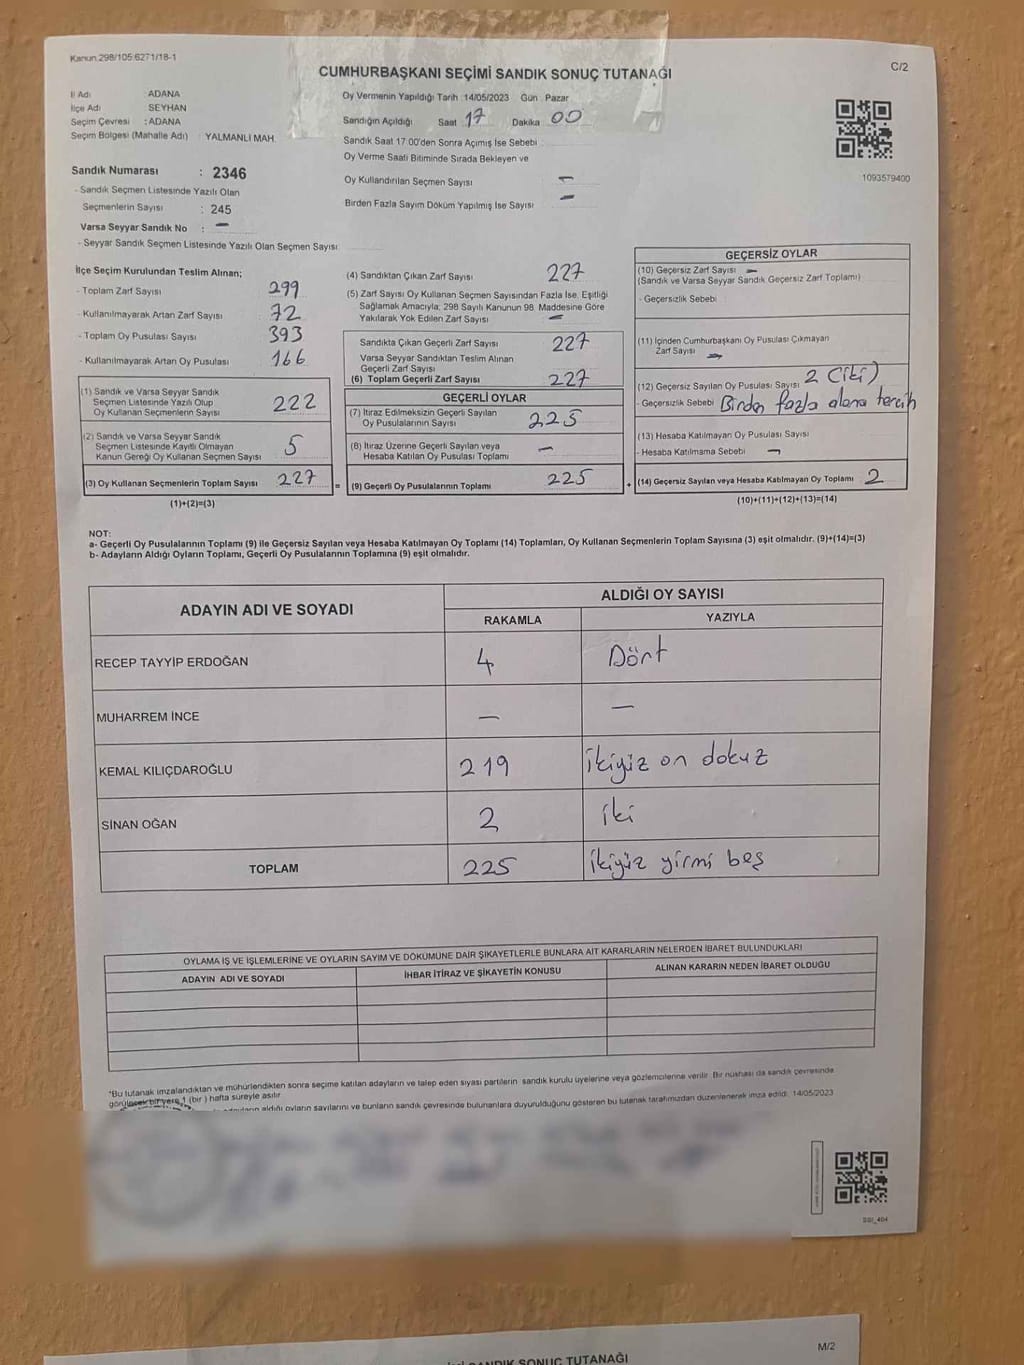 Kanun 298/105:6271/18-1
C/2
CUMHURBAŞKANI SEÇİMİ SANDIK SONUÇ TUTANAĞI
İl Adı ADANA
İlçe Adı SEYHAN
Seçim Çevresi : ADANA
Seçim Bölgesi (Mahalle Adı) YALMANLI MAH.
Oy Vermenin Yapıldığı Tarih 14/05/2023 Gün Pazar
Sandığın Açıldığı Saat 17 Dakika 00
Sandık Saat 17:00'den Sonra Açımış İse Sebebi
Oy Verme Saati Bitiminde Sırada Bekleyen ve
Oy Kullandırılan Seçmen Sayısı –
Birden Fazla Sayım Döküm Yapılmış İse Sayısı –
1093579400
Sandık Numarası : 2346
- Sandık Seçmen Listesinde Yazılı Olan
Seçmenlerin Sayısı : 245
Varsa Seyyar Sandık No : –
- Seyyar Sandık Seçmen Listesinde Yazılı Olan Seçmen Sayısı
İlçe Seçim Kurulundan Teslim Alınan;
- Toplam Zarf Sayısı 299
- Kullanılmayarak Artan Zarf Sayısı 72
- Toplam Oy Pusulası Sayısı 393
- Kullanılmayarak Artan Oy Pusulası 166
(1) Sandık ve Varsa Seyyar Sandık
Seçmen Listesinde Yazılı Olup
Oy Kullanan Seçmenlerin Sayısı 222
(2) Sandık ve Varsa Seyyar Sandık
Seçmen Listesinde Kayıtlı Olmayan
Kanun Gereği Oy Kullanan Seçmen Sayısı 5
(3) Oy Kullanan Seçmenlerin Toplam Sayısı 227 =
(1)+(2)=(3)
(4) Sandıktan Çıkan Zarf Sayısı 227
(5) Zarf Sayısı Oy Kullanan Seçmen Sayısından Fazla İse, Eşitliği
Sağlamak Amacıyla, 298 Sayılı Kanunun 98. Maddesine Göre
Yakılarak Yok Edilen Zarf Sayısı –
Sandıkta Çıkan Geçerli Zarf Sayısı 227
Varsa Seyyar Sandıktan Teslim Alınan
Geçerli Zarf Sayısı
(6) Toplam Geçerli Zarf Sayısı 227
GEÇERLİ OYLAR
(7) İtiraz Edilmeksizin Geçerli Sayılan
Oy Pusulalarının Sayısı 225
(8) İtiraz Üzerine Geçerli Sayılan veya
Hesaba Katılan Oy Pusulası Toplamı –
(9) Geçerli Oy Pusulalarının Toplamı 225 +
GEÇERSİZ OYLAR
(10) Geçersiz Zarf Sayısı –
(Sandık ve Varsa Seyyar Sandık Geçersiz Zarf Toplamı)
- Geçersizlik Sebebi
(11) İçinden Cumhurbaşkanı Oy Pusulası Çıkmayan
Zarf Sayısı –
(12) Geçersiz Sayılan Oy Pusulası Sayısı 2 (iki)
- Geçersizlik Sebebi Birden fazla alana tercih
(13) Hesaba Katılmayan Oy Pusulası Sayısı
- Hesaba Katılmama Sebebi –
(14) Geçersiz Sayılan veya Hesaba Katılmayan Oy Toplamı 2
(10)+(11)+(12)+(13)=(14)
NOT:
a- Geçerli Oy Pusulalarının Toplamı (9) ile Geçersiz Sayılan veya Hesaba Katılmayan Oy Toplamı (14) Toplamları, Oy Kullanan Seçmenlerin Toplam Sayısına (3) eşit olmalıdır. (9)+(14)=(3)
b- Adayların Aldığı Oyların Toplamı, Geçerli Oy Pusulalarının Toplamına (9) eşit olmalıdır.
ADAYIN ADI VE SOYADI ALDIĞI OY SAYISI
RAKAMLA YAZIYLA
RECEP TAYYİP ERDOĞAN 4 Dört
MUHARREM İNCE – –
KEMAL KILIÇDAROĞLU 219 ikiyüz on dokuz
SİNAN OĞAN 2 iki
TOPLAM 225 ikiyüz yirmi beş
OYLAMA İŞ VE İŞLEMLERİNE VE OYLARIN SAYIM VE DÖKÜMÜNE DAİR ŞİKAYETLERLE BUNLARA AİT KARARLARIN NELERDEN İBARET BULUNDUKLARI
ADAYIN ADI VE SOYADI İHBAR İTİRAZ VE ŞİKAYETİN KONUSU ALINAN KARARIN NEDEN İBARET OLDUĞU
*Bu tutanak imzalandıktan ve mühürlendikten sonra seçime katılan adayların ve talep eden siyasi partilerin sandık kurulu üyelerine veya gözlemcilerine verilir. Bir nüshası da sandık çevresinde
görülecek bir yere 1 (bir) hafta süreyle asılır
aldığı oyların sayılarını ve bunların sandık çevresinde bulunanlara duyurulduğunu gösteren bu tutanak tarafımızdan düzenlenerek imza edildi. 14/05/2023
SSI_404
M/2
SANDIK SONUÇ TUTANAĞI